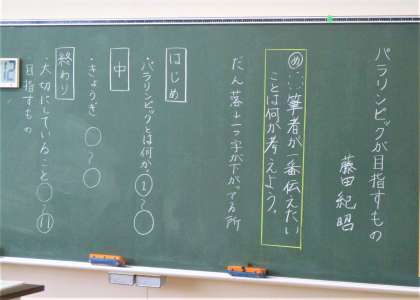 パラリンピックが目指すもの
藤田紀昭
め 筆者が一番伝えたい
ことは何か考えよう。
だん落→一字が下がってる所
はじめ
・パラリンピックとは何か ①~○
中
・きょうぎ ○~○
終わり
・大切にしていること ○~⑪
目指すもの
12